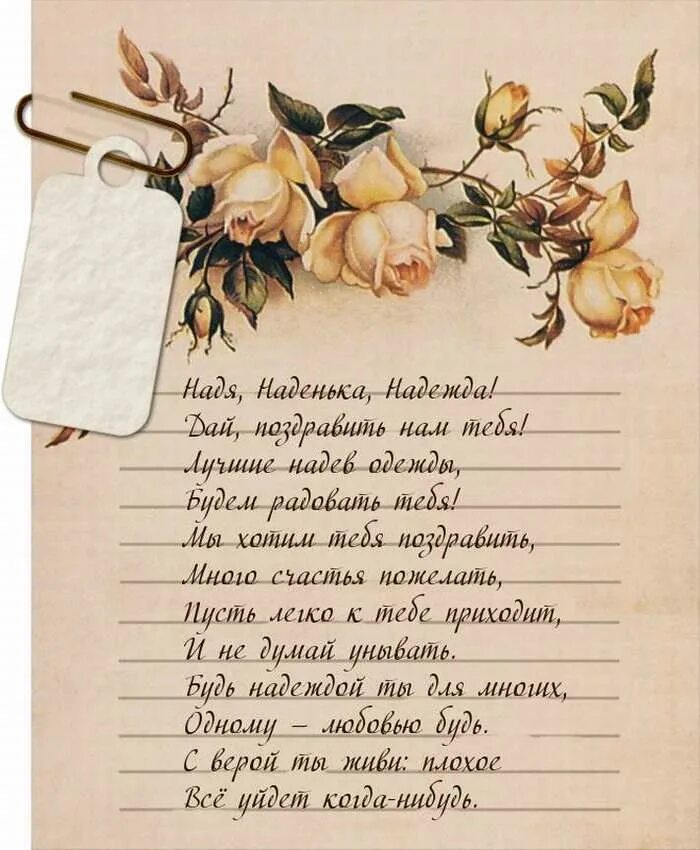 Надя, Наденька, Надежда!
Дай, поздравить нам тебя!
Лучшие надев одежды,
Будем радовать тебя!
Мы хотим тебя поздравить,
Много счастья пожелать,
Пусть легко к тебе приходит,
И не думай унывать.
Будь надеждой ты для многих,
Одному – любовью будь.
С верой ты живи: плохое
Всё уйдет когда-нибудь.